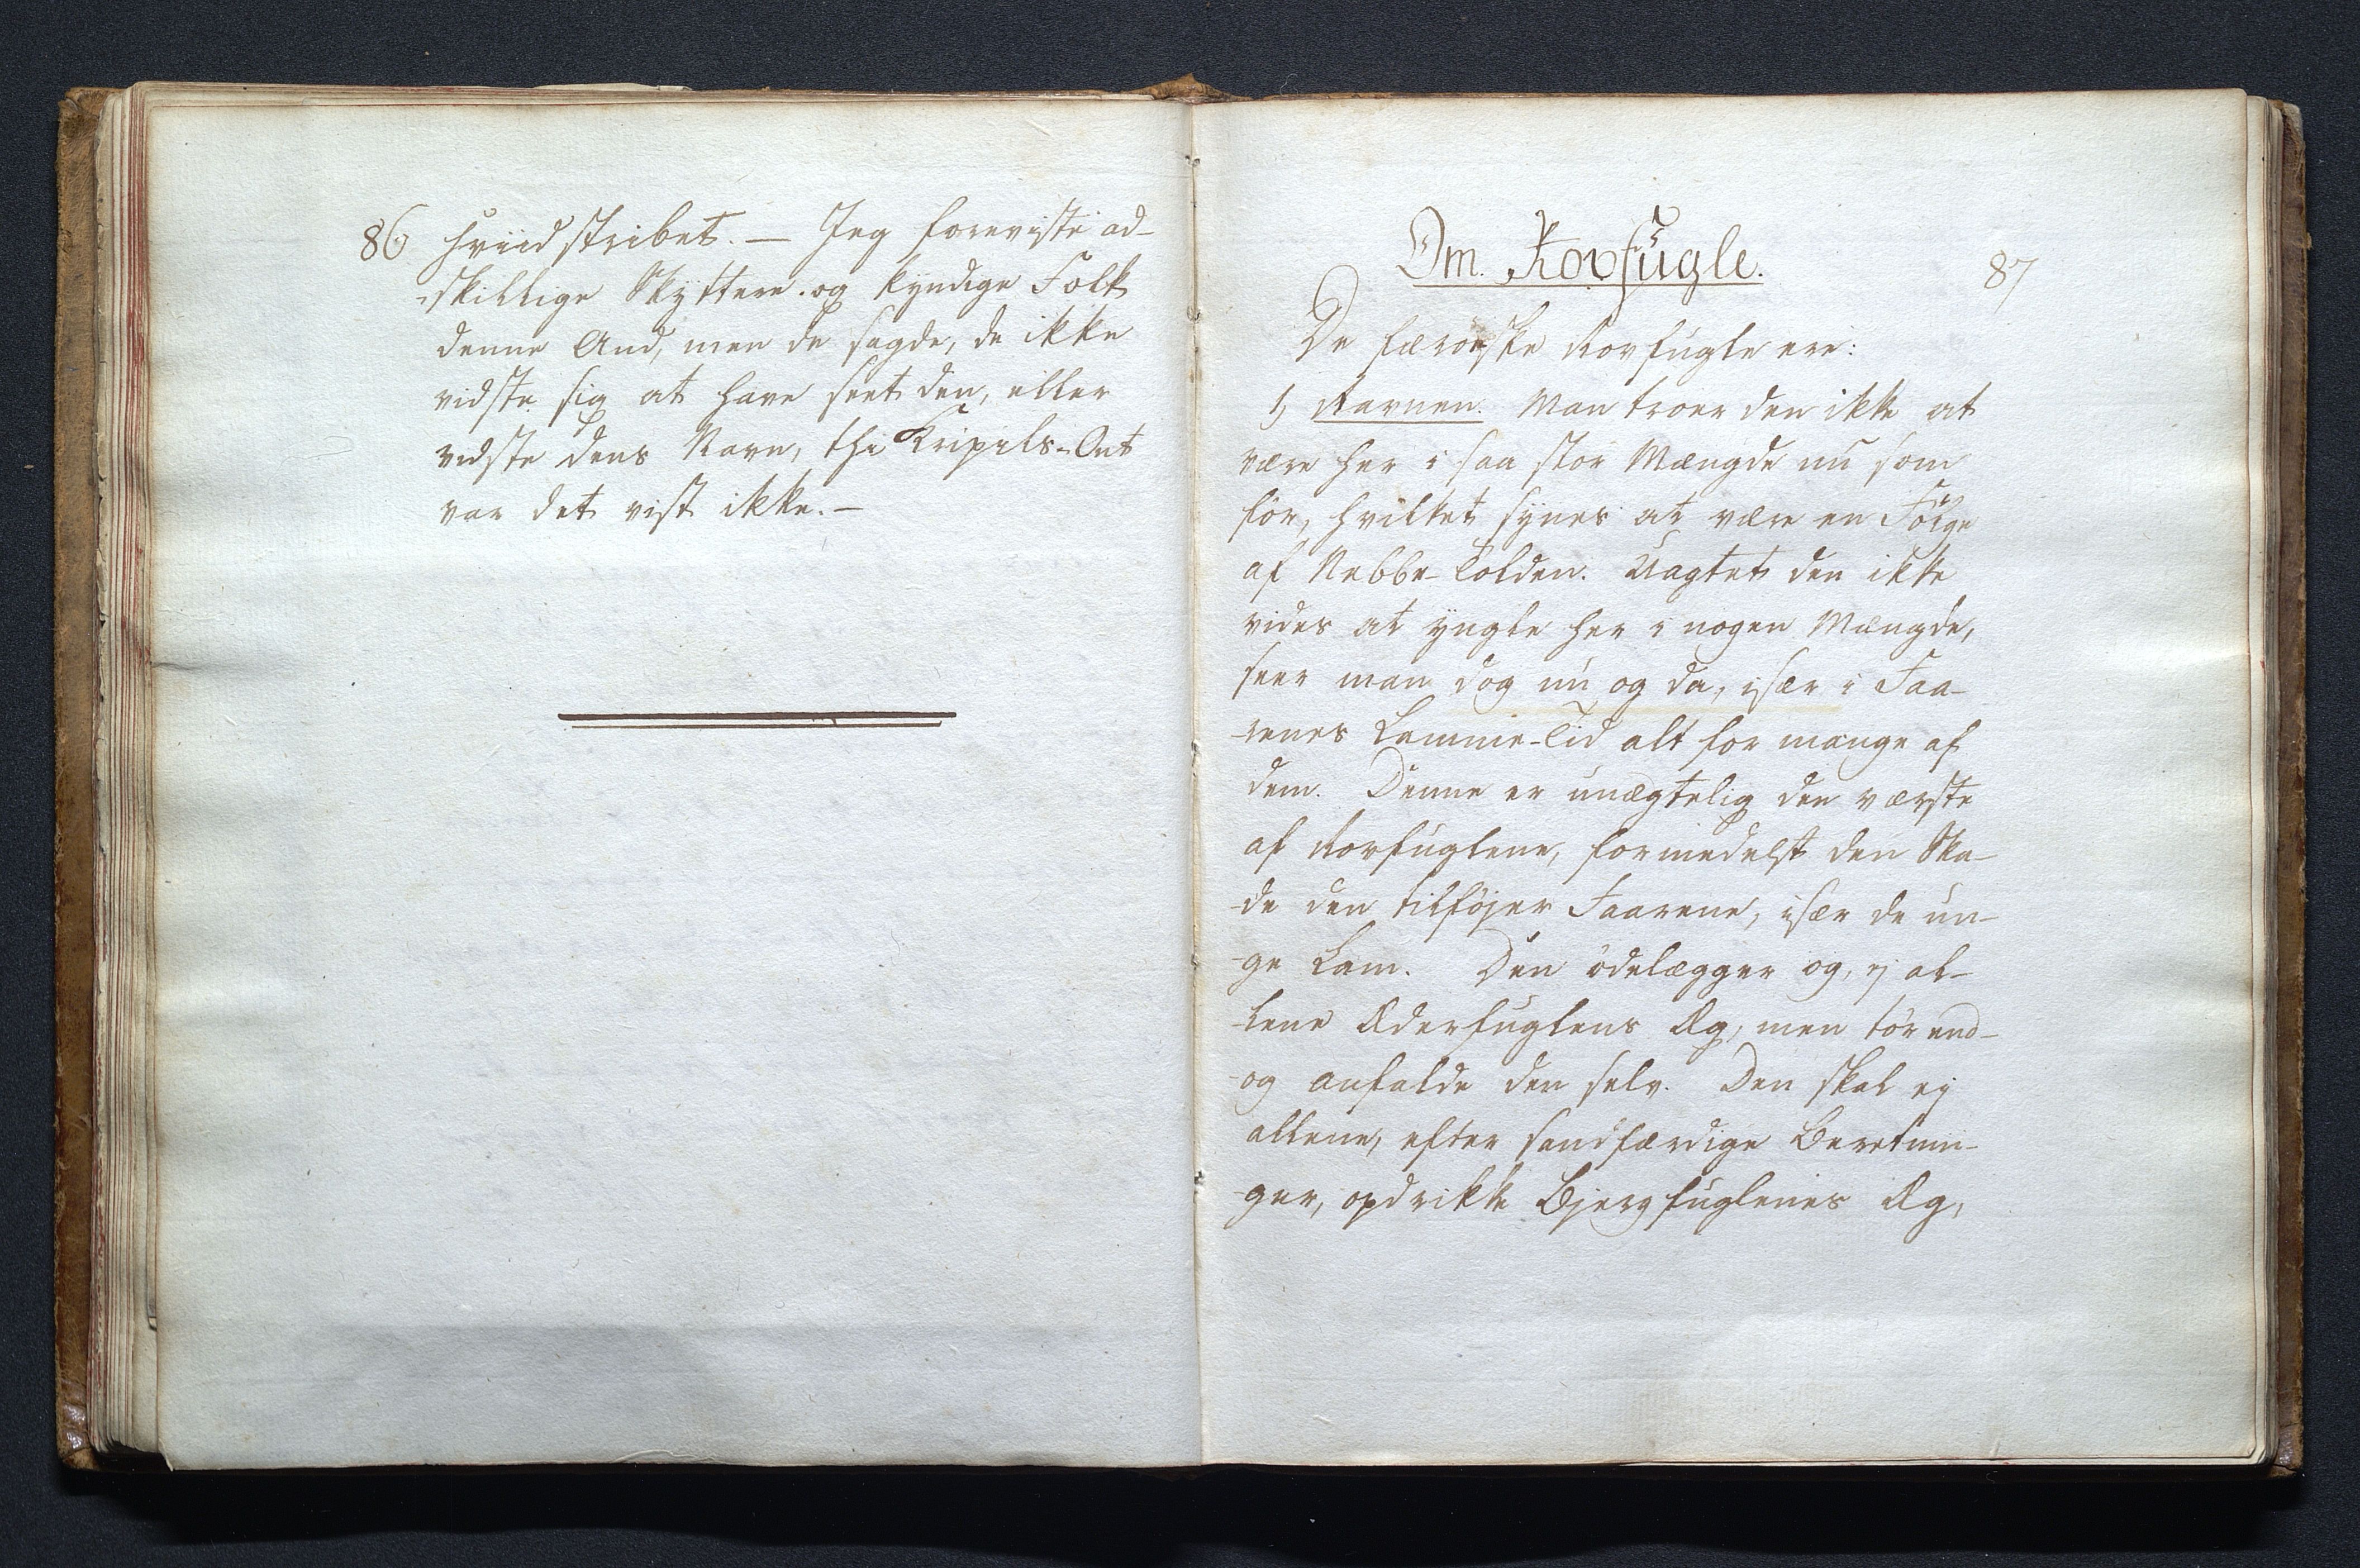 86 hviid stribet. — Jeg foreviste ad-
-skillige Skyttere og kyndige Folk
denne And, men de sagde, de ikke
vidste sig at have seet den, eller
vidste dens Navn, thi Kripils-Ont
var det vist ikke. —
Om Rovfugle.
87
De færoeske Rovfugle ere:
1, Ravnen. Man troer den ikke at
være her i saa stor Mængde nu som
før, hvilket synes at være en Følge
af Nebbe-Tolden. Uagtet den ikke
vides at yngle her i nogen Mængde,
seer man dog nu og da, især i Faa-
-renes Lamme-Tid alt for mange af
dem. Denne er unægtelig den værste
af Rovfuglene, formedelst den Ska-
-de den tilføjer Faarene, især de un-
-ge Lam. Den ødelægger og, ej al-
-lene Æderfuglens Æg, men tør end-
-og anfalde den selv. Den skal ej
allene, efter sandfærdige Beretnin-
-ger, opdrikke Bjergfuglenes Æg,